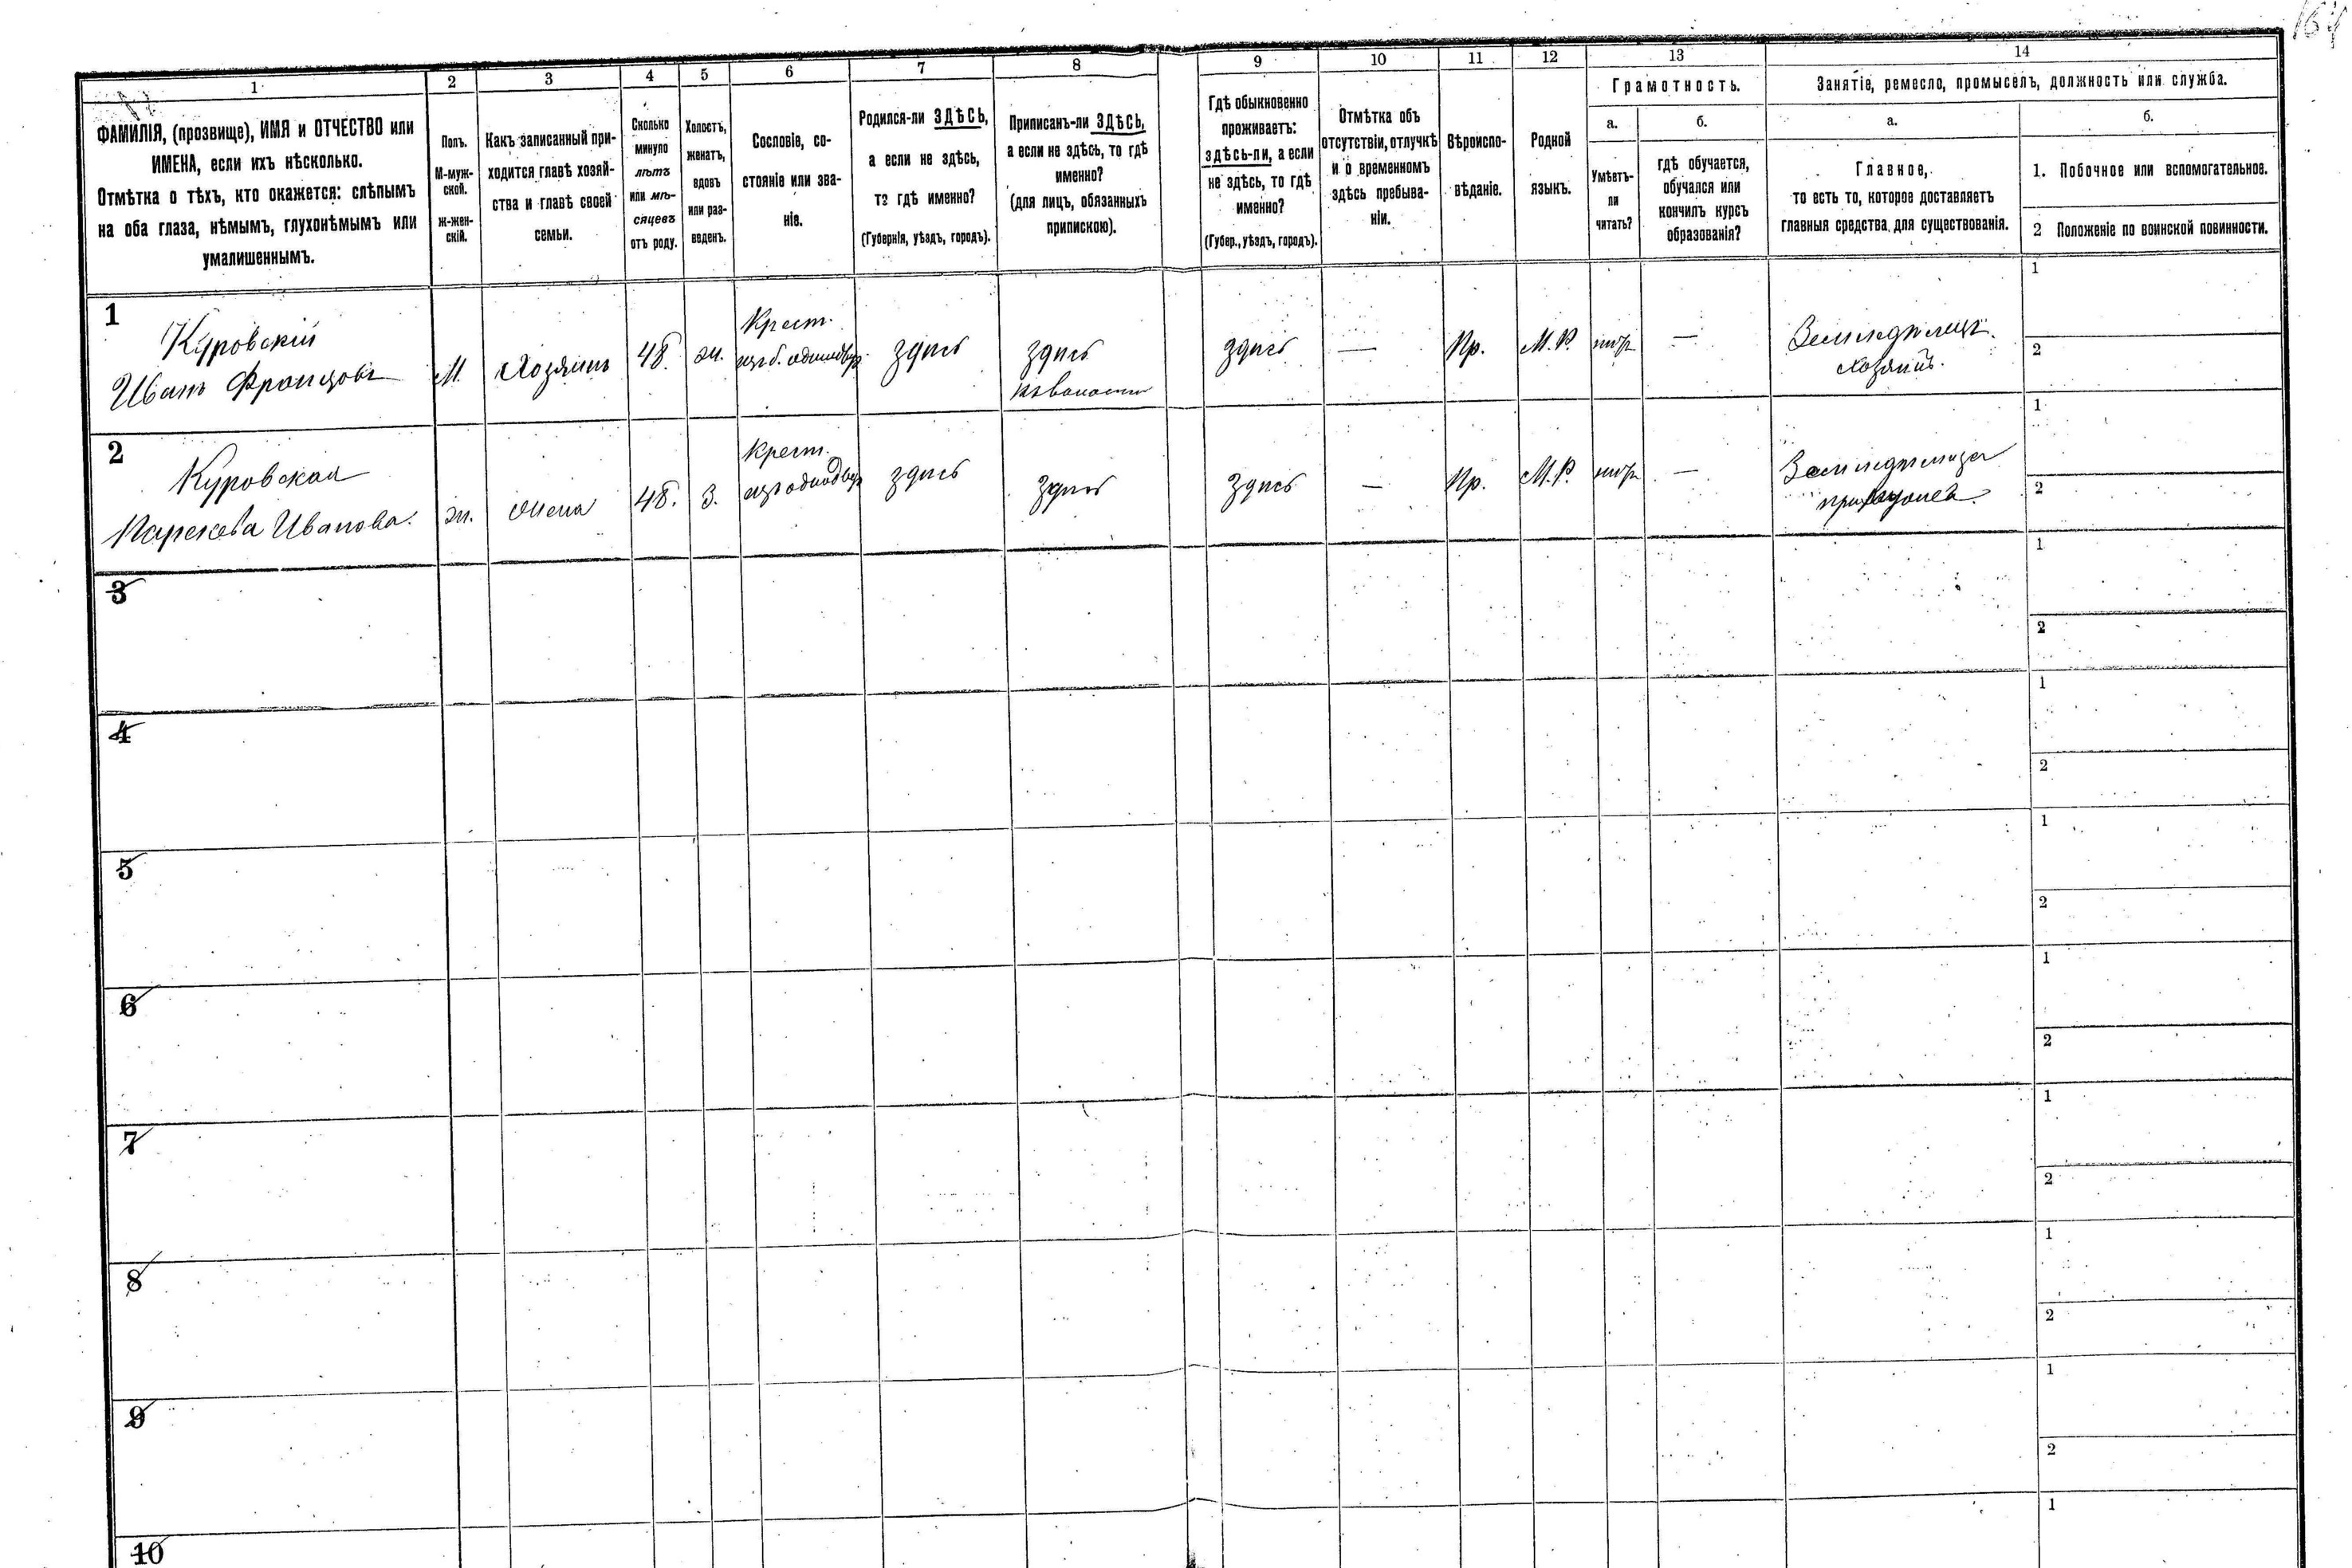 164
1 2 3 4 5 6 7 8 9 10 11 12 13 14
ФАМИЛІЯ, (прозвище), ИМЯ и ОТЧЕСТВО или
ИМЕНА, если ихъ нѣсколько.
Отмѣтка о тѣхъ, кто окажется: слѣпымъ
на оба глаза, нѣмымъ, глухонѣмымъ или
умалишеннымъ.
Полъ.
М-муж-
ской.
ж-жен-
скій.
Какъ записанный при-
ходится главѣ хозяй-
ства и главѣ своей
семьи.
Сколько
минуло
лѣтъ
или мѣ-
сяцевъ
отъ роду.
Холостъ,
женатъ,
вдовъ
или раз-
веденъ.
Сословіе, со-
стояніе или зва-
ніе.
Родился-ли ЗДѢСЬ,
а если не здѣсь,
то гдѣ именно?
(Губернія, уѣздъ, городъ).
Приписанъ-ли ЗДѢСЬ,
а если не здѣсь, то гдѣ
именно?
(для лицъ, обязанныхъ
припискою).
Гдѣ обыкновенно
проживаетъ:
здѣсь-ли, а если
не здѣсь, то гдѣ
именно?
(Губер., уѣздъ, городъ).
Отмѣтка объ
отсутствіи, отлучкѣ
и о временномъ
здѣсь пребыва-
ніи.
Вѣроиспо-
вѣданіе.
Родной
языкъ.
Грамотность.
а.
Умѣетъ-
ли
читать?
б.
гдѣ обучается,
обучался или
кончилъ курсъ
образованія?
Занятіе, ремесло, промыселъ, должность или служба.
а.
Главное,
то есть то, которое доставляетъ
главныя средства для существованія.
б.
1. Побочное или вспомогательное.
2 Положеніе по воинской повинности.
1
Куровскій
Иванъ Францовъ
М.
Хозяинъ
48.
ж.
Крест.
изъ б. однодвор.
здѣсь
здѣсь
здѣсь
—
Пр.
М. Р.
—
Земледѣлецъ.
хозяинъ.
1
2
2
Куровская
Параскева Иванова.
ж.
жена
48.
З.
Крест.
изъ однодвор
здѣсь
здѣсь
здѣсь
—
Пр.
М. Р.
—
Земледѣлица
1
2
3
1
2
4
1
2
5
1
2
6
1
2
7
1
2
8
1
2
9
1
2
10
1